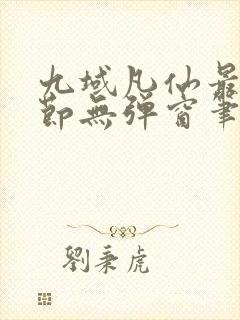 九域凡仙最
節無彈窗筆
劉秉虎